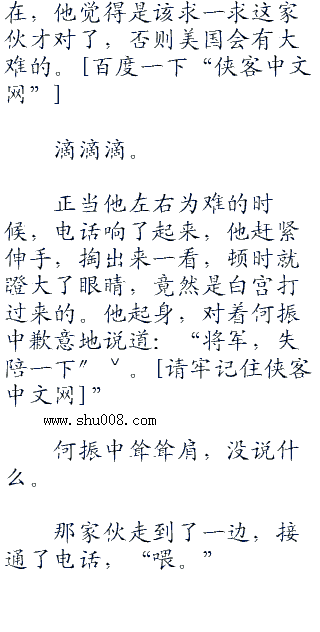 在，他觉得是该求一求这家
伙才对了，否则美国会有大
难的。[百度一下“侠客中文
网”]
滴滴滴。
正当他左右为难的时
候，电话响了起来，他赶紧
伸手，掏出来一看，顿时就
瞪大了眼睛，竟然是白宫打
过来的。他起身，对着何振
中歉意地说道：“将军，失
陪一下〞ˇ。[请牢记住侠客
中文网]”
www.shu008.com
何振中耸耸肩，没说什
么。
那家伙走到了一边，接
通了电话，“喂。”